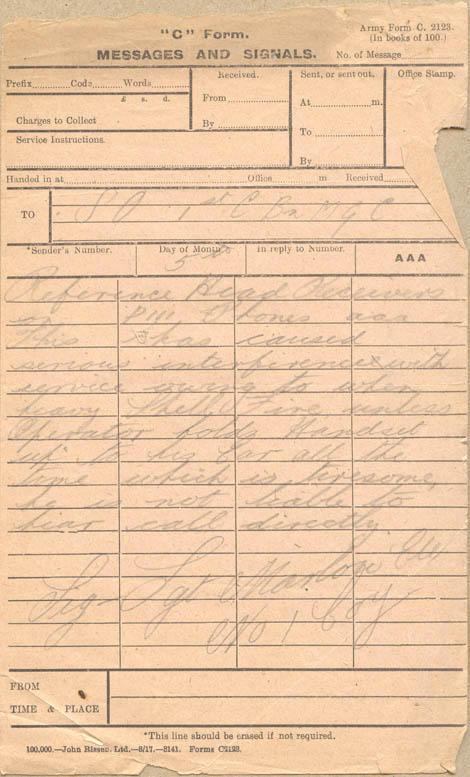 "C" Form.
Army Form C. 2123.
(In books of 100.)
MESSAGES AND SIGNALS.
No. of Message
Prefix Code Words
Received.
Sent, or sent out.
Office Stamp.
£ s. d.
From
At m.
Charges to Collect
By
To
Service Instructions.
By
Handed in at Office m Received
TO S O 1st C Bn M G C
*Sender's Number.
Day of Month
In reply to Number.
AAA
5th
Reference Head Receivers
D III Phones aaa
This has caused
serious interference with
service owing to when
heavy Shell Fire, unless
Operator holds Handset
up to his Ear all the
time which is tiresome,
he is not liable to
hear call directly.
Sig Sgt
No 1 Coy
FROM
TIME & PLACE
*This line should be erased if not required.
100,000.—John Rissen, Ltd.—8/17.—8141. Forms C2123.